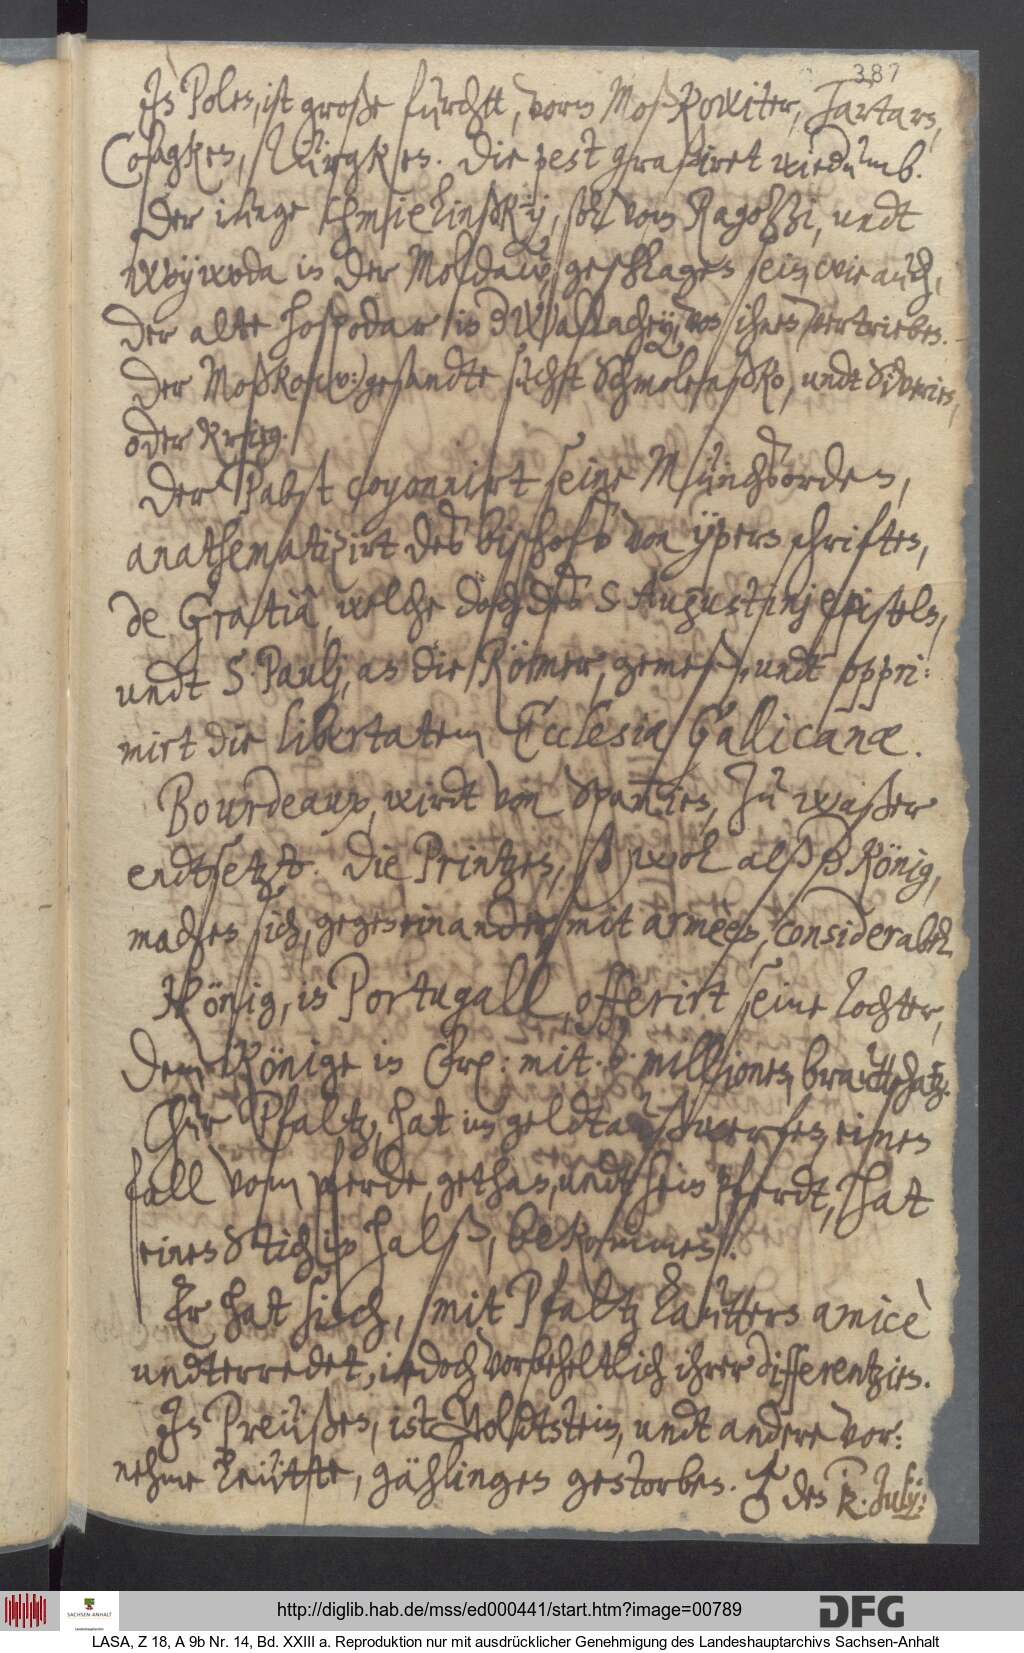 387
In Polen, ist große furchtt, vorm Moßkowiter, Tartarn,
Cosagken, Türgken. Die pest graßiret wiederumb.
Der iunge Chmielinßkij, soll vom Ragozzi, undt
woywoda in der Moldaw, geschlagen sein, wie auch,
der alte hospodar in der Wallachey, von ihnen vertrieben.
Der Moßkow: gesandte sucht Schmolenßko, undt Siverien,
oder Krieg.
Der Pabst coyonnirt seine Münchsorden,
anathematizirt des bischofs von ÿpern schriften,
de Gratiâ, welche doch des S Augustinj episteln,
undt S. Paulj, an die Römer, gemeß, undt oppri:
mirt die libertatem Ecclesiæ Gallicanæ.
Bourdeaux, wirdt von Spannien, zu waßer
endtsetzt. Die Printzen, so wol alß der König,
machen sich, gegeneinander, mit armèen, considerabel.
König, in Portugall, offerirt seine Tochter,
dem Könige in Engl: mit 6 millionen brauttschatz.
Chur Pfaltz, hat im geldtaußwerfen, einen
fall vom pferde, gethan, undt sein pferdt, hat
einen Stich in halß, bekommen.
Er hat sich, mit Pfaltz Lauttern amicè
undterredet, iedoch vorbeheltlich ihrer differentzien.
In Preußen, ist Woldtstein, undt andere vor:
nehme Leutte, gählingen gestorben. ♂ den July:
http://diglib.hab.de/mss/ed000441/start.htm?image=00789
SACHSEN-ANHALT
DFG
LASA, Z 18, A 9b Nr. 14, Bd. XXIII a. Reproduktion nur mit ausdrücklicher Genehmigung des Landeshauptarchivs Sachsen-Anhalt